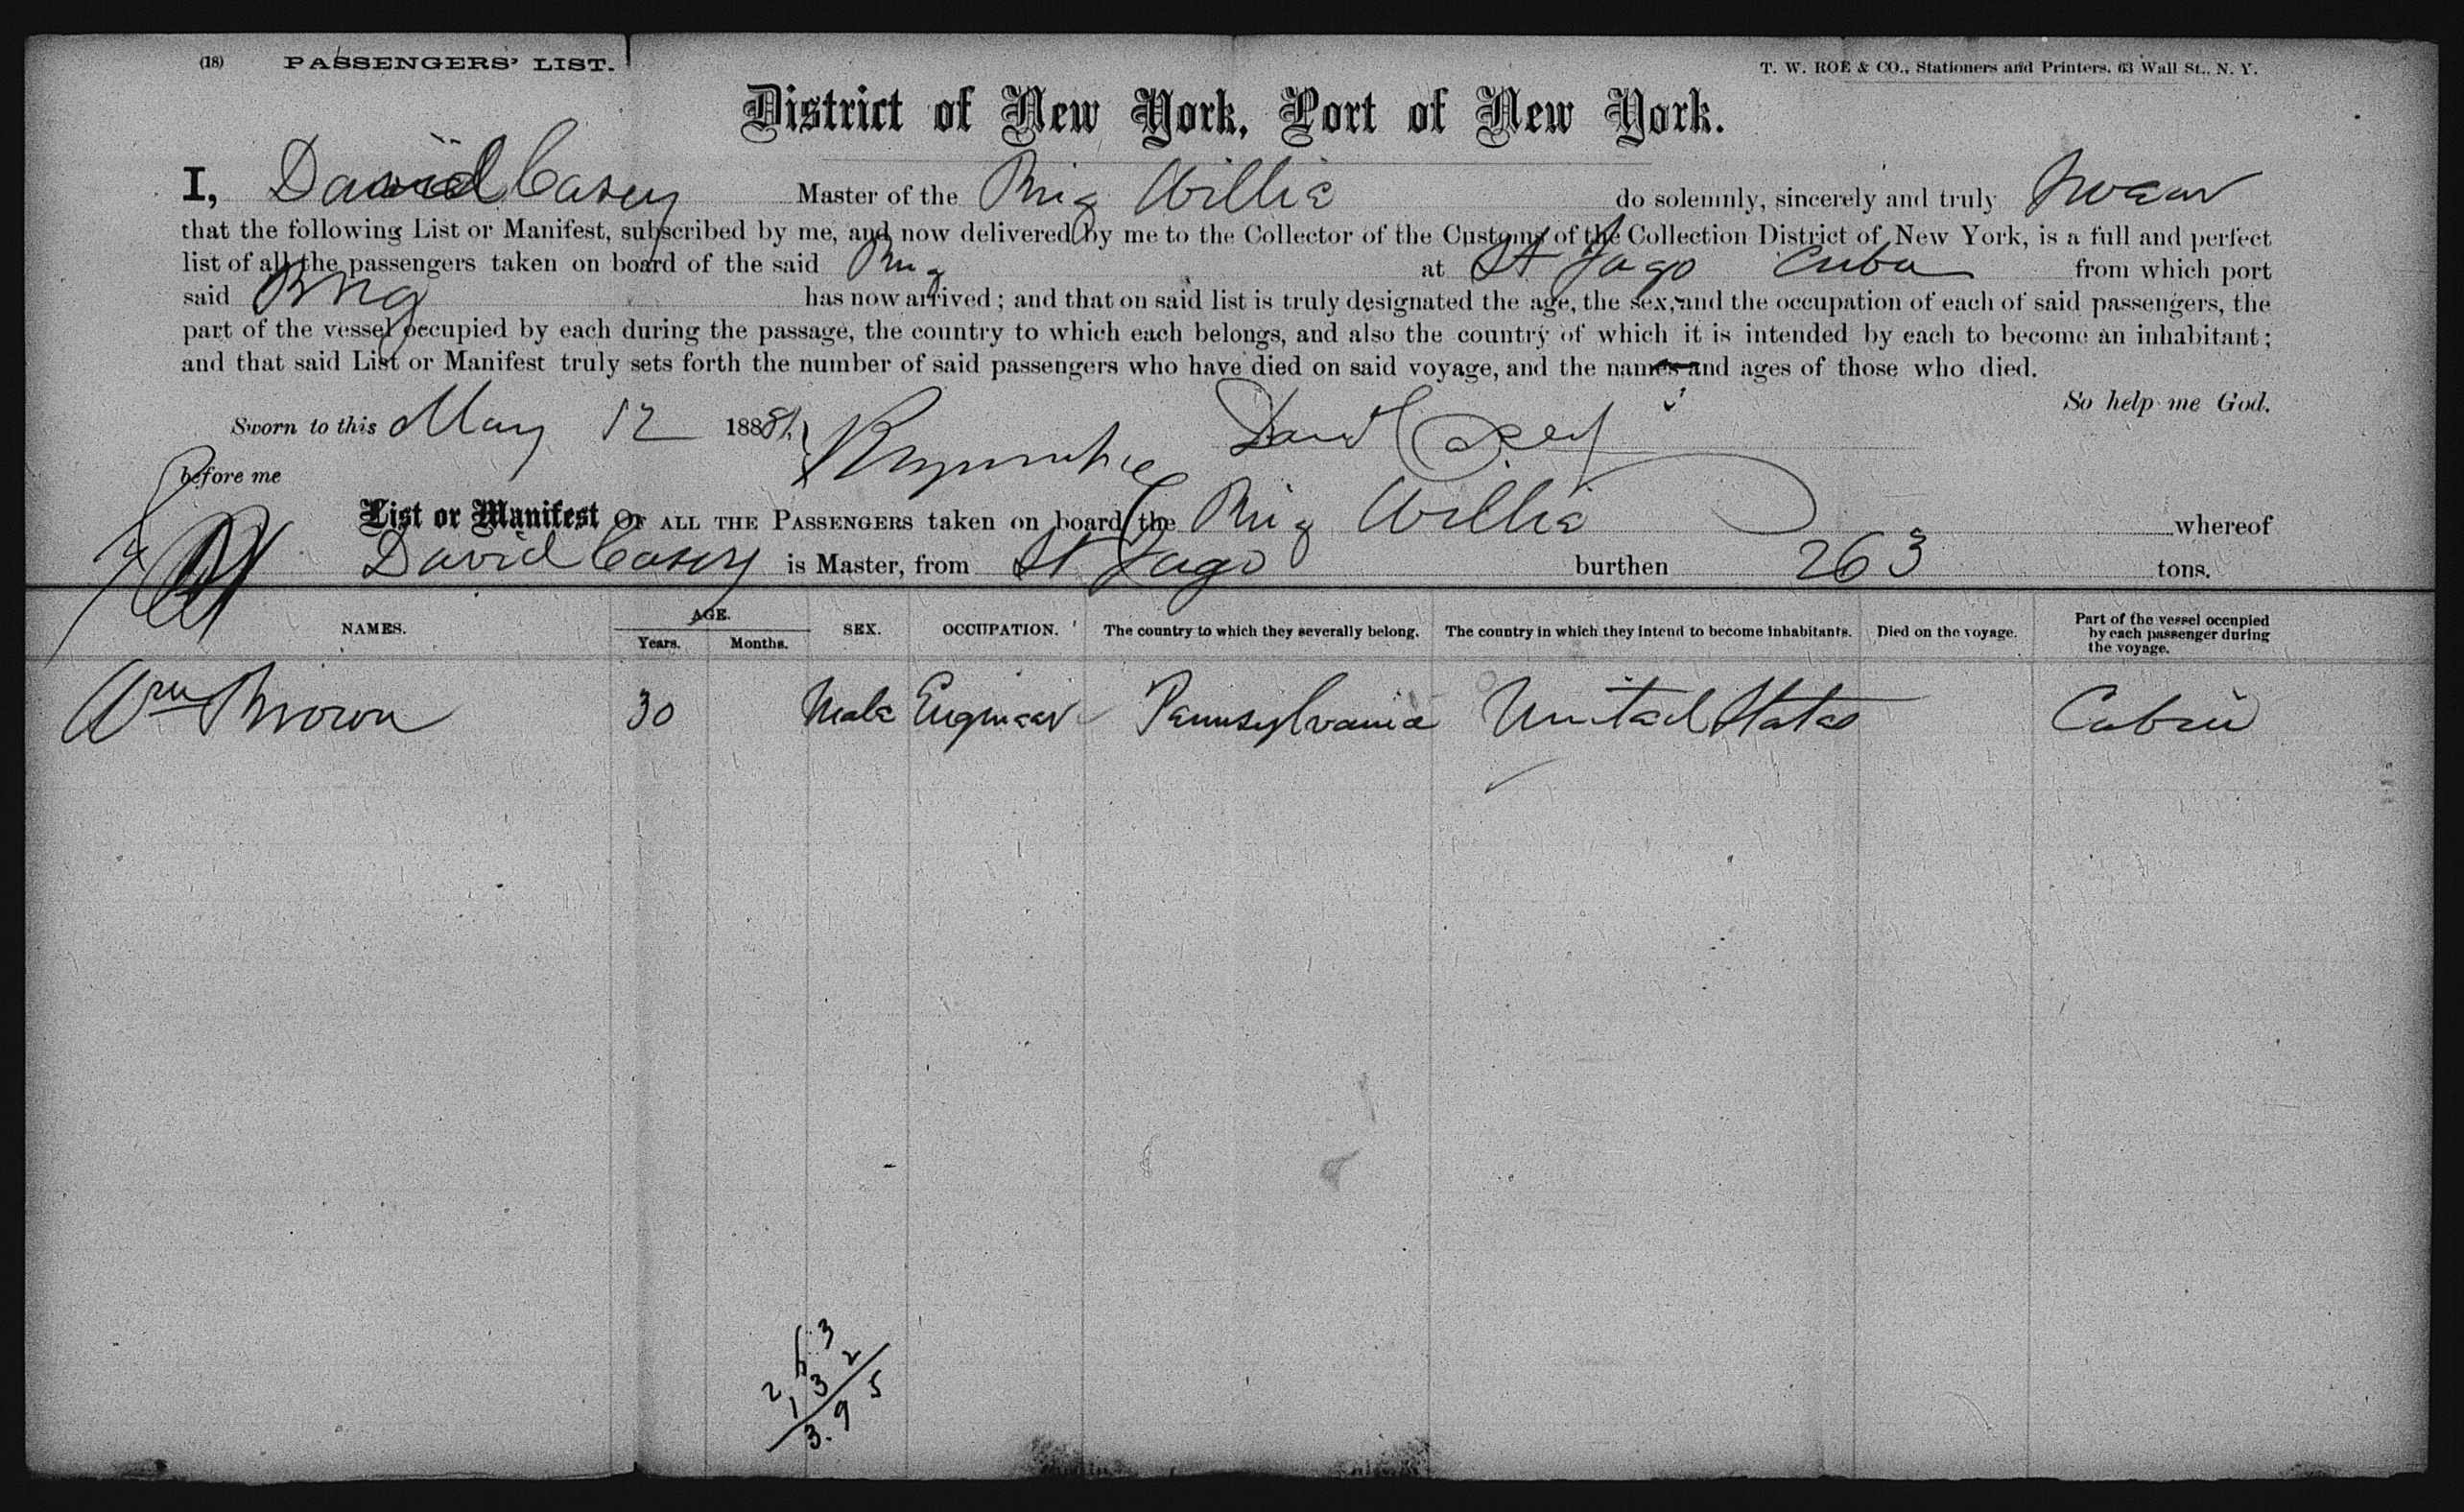 (18) PASSENGERS' LIST. T. W. ROE & CO., Stationers and Printers, 63 Wall St., N. Y.
District of New York, Port of New York.
I, David Casey Master of the Brig Willie do solemnly, sincerely and truly swear
that the following List or Manifest, subscribed by me, and now delivered by me to the Collector of the Customs of the Collection District of New York, is a full and perfect
list of all the passengers taken on board of the said Brig at St Jago Cuba from which port
said Brig has now arrived; and that on said list is truly designated the age, the sex, and the occupation of each of said passengers, the
part of the vessel occupied by each during the passage, the country to which each belongs, and also the country of which it is intended by each to become an inhabitant;
and that said List or Manifest truly sets forth the number of said passengers who have died on said voyage, and the names and ages of those who died.
So help me God.
Sworn to this May 12 188 David Casey
before me
List or Manifest OF ALL THE PASSENGERS taken on board the Brig Willie whereof
David Casey is Master, from St Jago burthen 263 tons.
NAMES. AGE. Years. Months. SEX. OCCUPATION. The country to which they severally belong. The country in which they intend to become inhabitants. Died on the voyage. Part of the vessel occupied by each passenger during the voyage.
Wm Brown 30 Male Engineer Pennsylvania United States Cabin
263
132
3.95